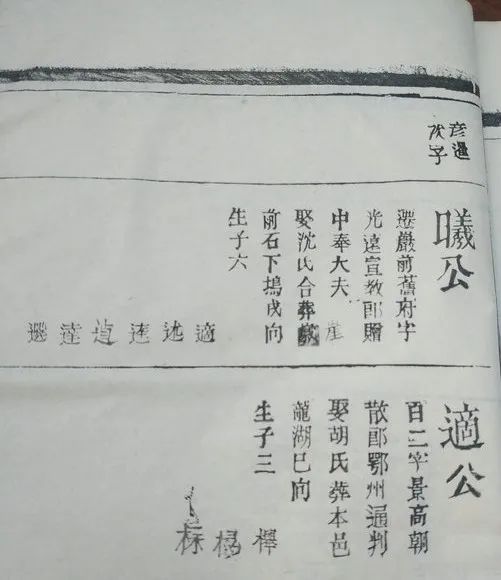 彦暹
次子
曦公
遷嚴前舊府字
光遠宣教郎贈
中奉大夫
娶沈氏合葬
崖
前石下塢戌向
生子六
適
达
達
公適
百二字景高朝
散郎鄂州通判
娶胡氏葬本邑
龍湖巳向
生子三
楊
標